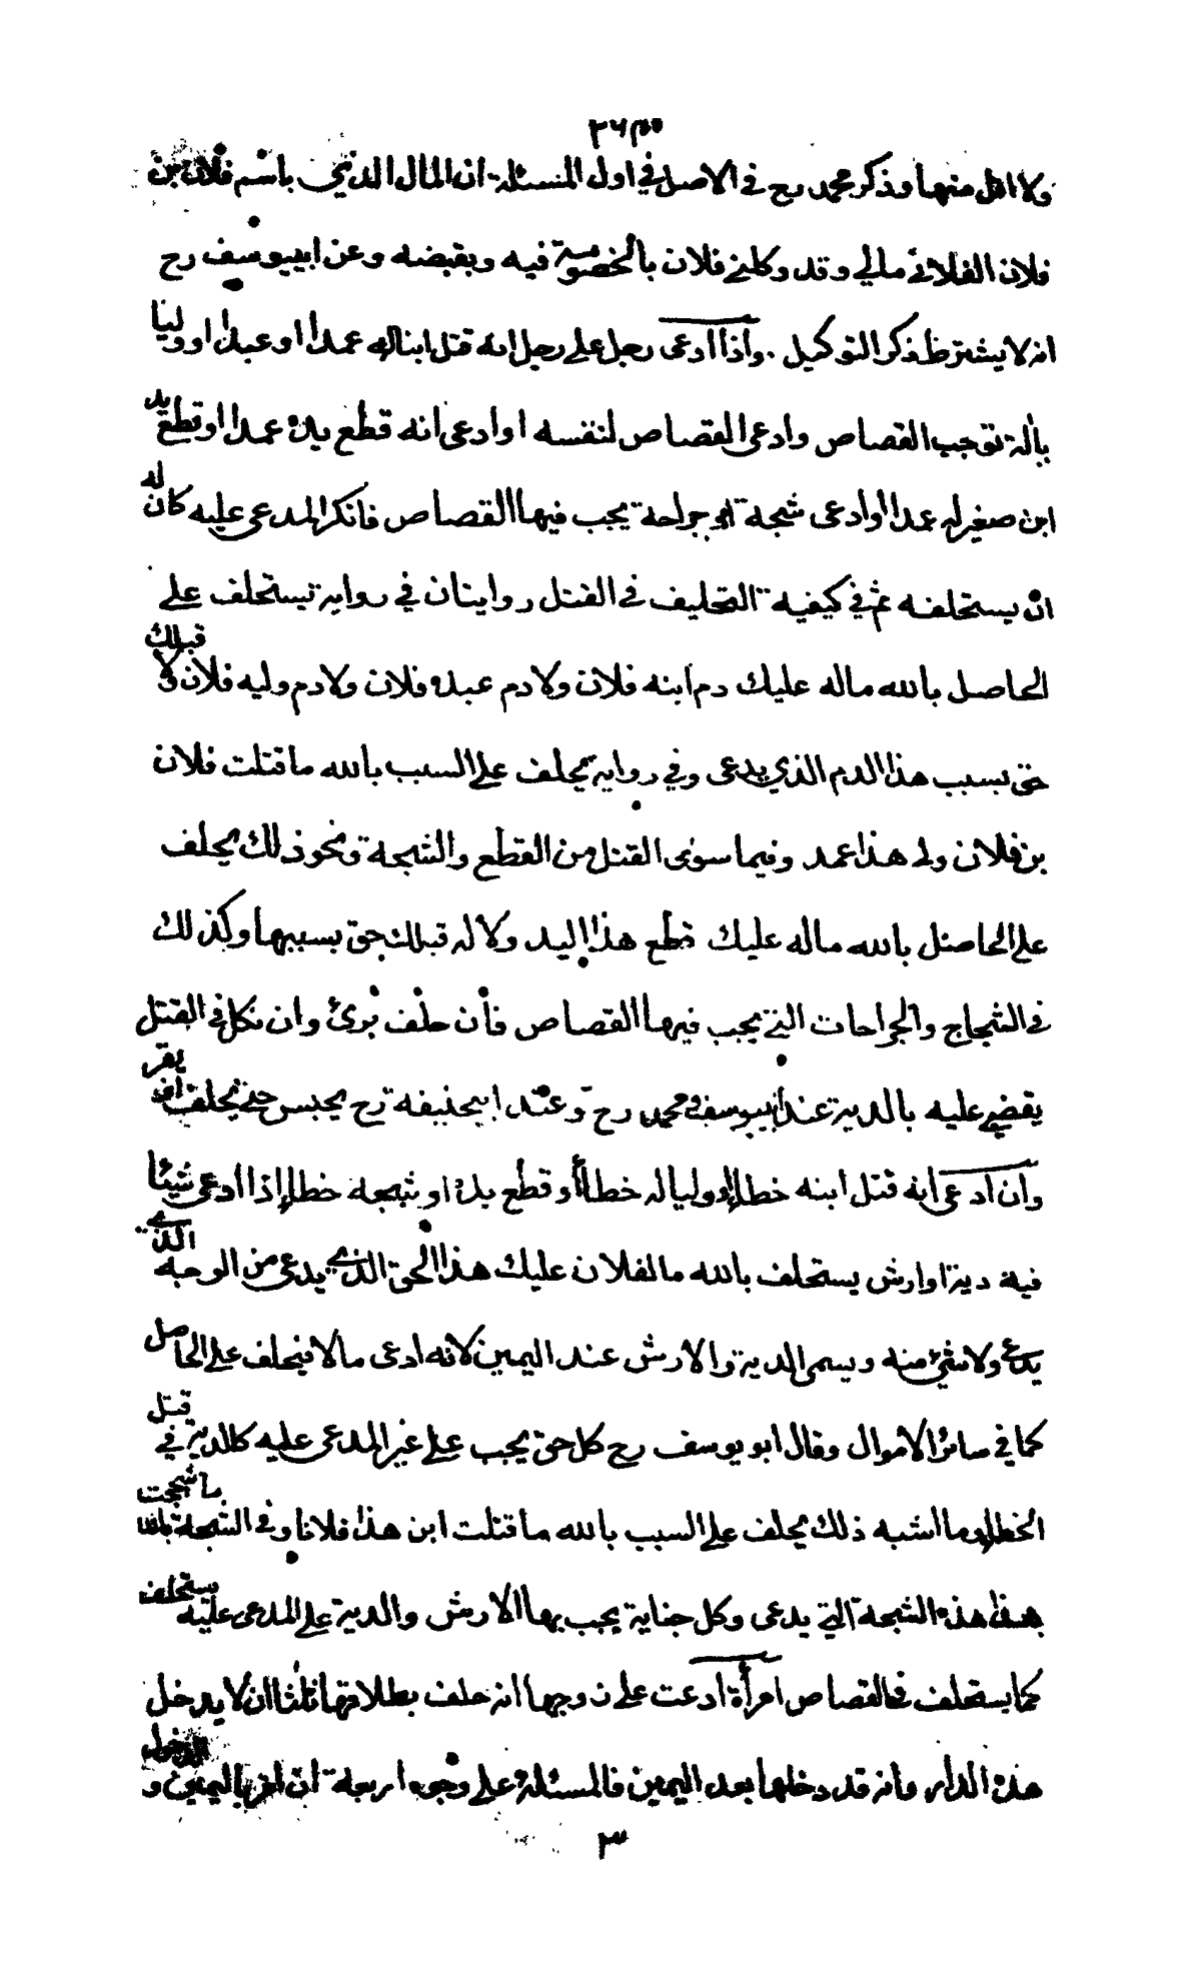 ولا اقل منها وذكر محمد رح في الاصل في اول المسئلة ان المال الذي باسم فلان بن
فلان الفلاني مالي وقد وكلني فلان بالخصومة فيه وبقبضه وعن ابييوسف رح
انه لا يشترط ذكر التوكيل . واذا ادعى رجل على رجل انه قتل ابنا له عمدا او عبدا او وليا
بآلة توجب القصاص وادعى القصاص لنفسه او ادعى انه قطع يده عمدا او قطع يد
ابن صغير له عمدا او ادعى شجة او جراحة يجب فيها القصاص فانكر المدعى عليه كان له
ان يستحلفه ثم في كيفية التحليف في القتل روايتان في رواية يستحلف على
الحاصل بالله ماله عليك دم ابنه فلان ولا دم عبده فلان ولا دم وليه فلان ولا قبلك
حق بسبب هذا الدم الذي يدعى وفي رواية يحلف على السبب بالله ما قتلت فلان
بن فلان ولي هذا عمد وفيما سوى القتل من القطع والشجة ونحو ذلك يحلف
على الحاصل بالله ماله عليك قطع هذا اليد ولا له قبلك حق بسببها وكذلك
في الشجاج والجراحات التي يجب فيها القصاص فأن حلف برئ وان نكل في القتل
يقضي عليه بالدية عند ابييوسف ومحمد رح وعند ابيحنيفة رح يحبس حتى يحلف او يقر
وان ادعى انه قتل ابنه خطأ او وليا له خطأ أو قطع يده او شجه خطأ إذا ادعى شيئا
فية دية او ارش يستحلف بالله ما لفلان عليك هذا الحق الذي يدعى من الوجه الذي
يدعي ولا شئ منه ويسمى الدية والارش عند اليمين لانه ادعى مالا فيحلف على الحاصل
كما في سائر الاموال وقال ابو يوسف رح كل حق يجب على غير المدعى عليه كالدية في قتل
الخطأ وما اشبه ذلك يحلف على السبب بالله ما قتلت ابن هذا فلانا وفي الشجة بالله ما شججت
هذا هذه الشجة التي يدعى وكل جناية يجب بها الارش والدية على المدعى عليه يستحلف
كما يستحلف في القصاص امرأة ادعت على زوجها انه حلف بطلاقها ثلثا ان لا يدخل
هذه الدار وانه قد دخلها بعد اليمين فالمسئلة على وجوه اربعة ان اقر باليمين و الدخول
٣